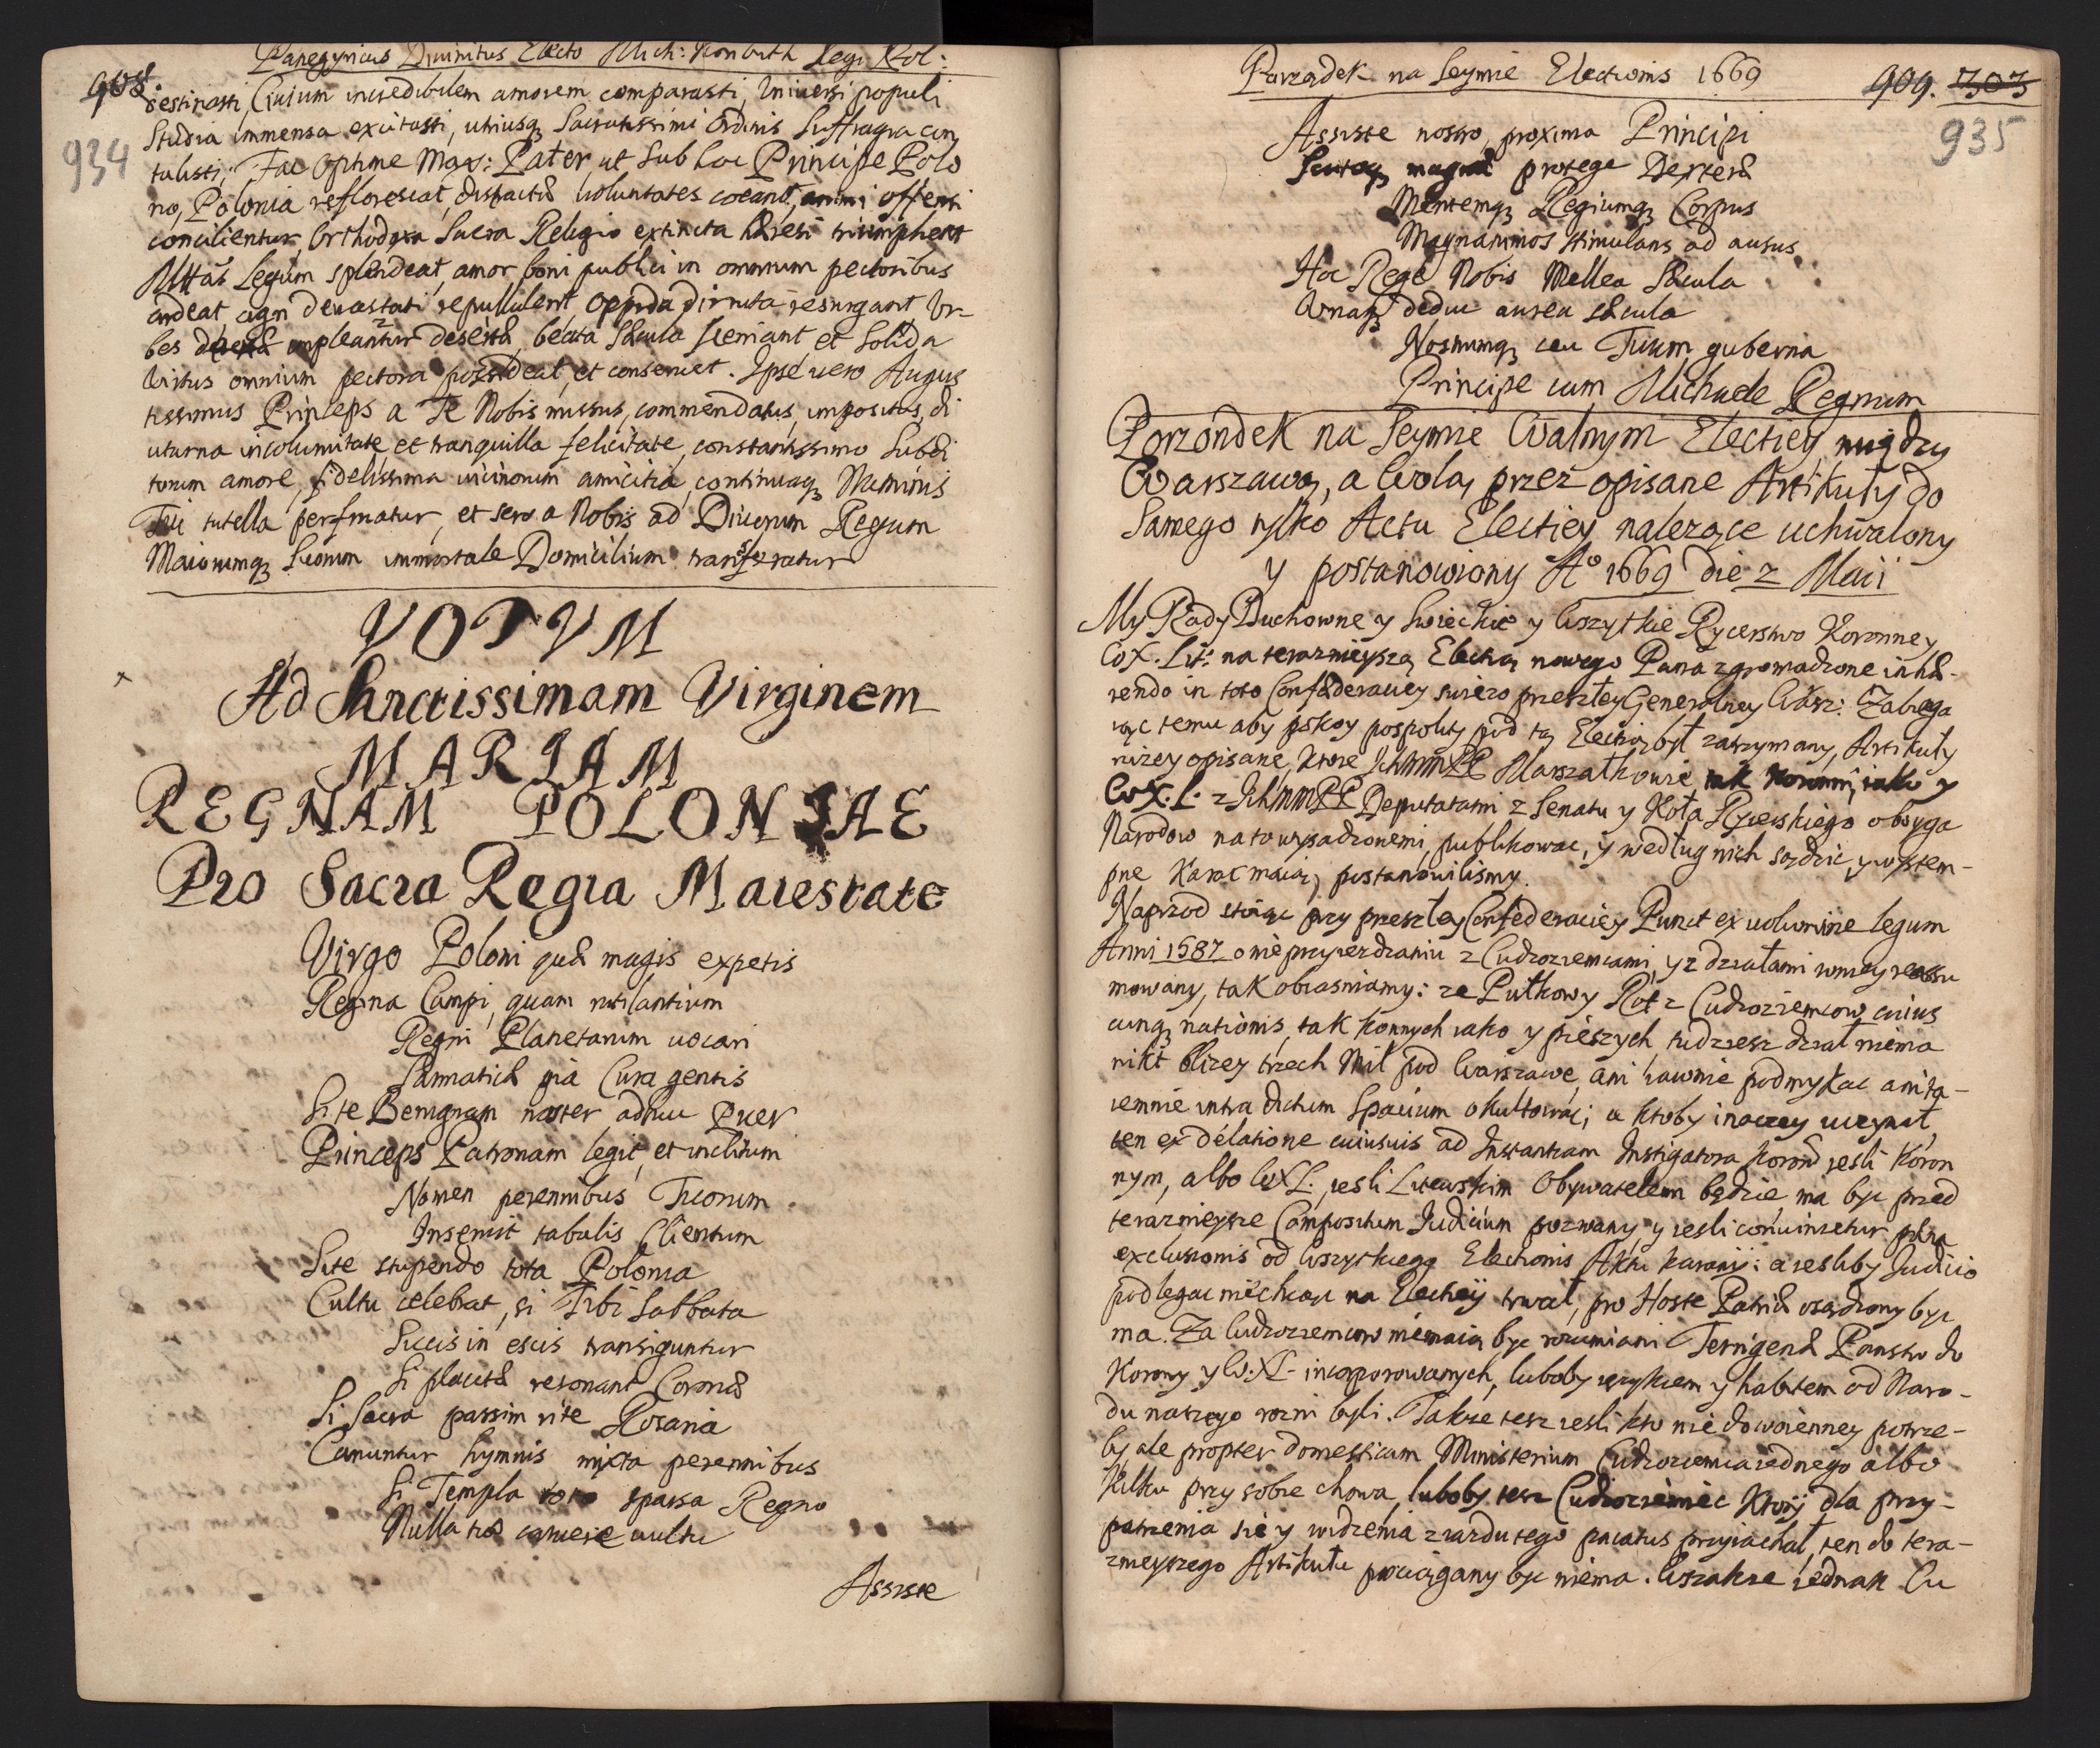 Panegyricus Divinitus Electo Mich: Koributh Regi Pol:
908.
934
destinasti, Civium incredibilem amorem comparasti, Universi populi
Studia immensa excitasti, utriusq Sacratissimi Ordinis Suffragia con
tulisti; Fac Optime Max: Pater, ut Sub hoc Principe Polo
no, Polonia reflorescat, distractæ voluntates coeant, animi offensi
concilientur, Orthodoxa Sacra Religio extincta hæresi triumphet
Mttas Legum splendeat, amor boni publici in omnium pectoribus
ardeat, agri devastati repullulent, oppida diruta resurgant, Ur-
bes impleantur desertæ, beata Sæcula veniant et Solida
virtus omnium pectora possideat, et conservet. Ipse vero Augus
tissimus Princeps a Te Nobis missus, commendatus, impositus, di
uturna incolumitate, et tranquilla felicitate, constantissimo Subdi
torum amore, fidelissima vicinorum amicitia, continuaq Numinis
Tui tutella perfruatur, et sero a Nobis ad Divorum Regum
Maiorumq Suorum immortale Domicilium transferatur
VOTVM
Ad Sanctissimam Virginem
MARIAM
REGNAM POLONIAE
Pro Sacra Regia Maiestate
Virgo Poloni quæ magis expetis
Regina Campi, quam rutilantium
Regni Planetarum vocari
Sarmaticæ pia Cura gentis
Si te Benignam noster adhuc Puer
Princeps Patronam legit, et inclitum
Nomen perennibus Tuorum
Inseruit tabulis Clientum
Si te stupendo tota Polonia
Cultu celebrat, si Tibi Sabbata
Siccis in escis transiguntur
Si placitæ resonant Coronæ
Si Sacra passim rite Rosaria
Canuntur hymnis mixta perennibus
Si Templa toto sparsa Regno
Nulla tuo caruere vultu
Assiste
Porządek na Seymie Electionis 1669
909. 703
935
Assiste nostro, proxima Principi
Scutoq magnæ protege Dexteræ
Mentemq Regiumq Corpus
Magnanimos stimulans ad ausus
Hoc Rege Nobis Mellea Sæcula
Unaq deduc aurea sæcula
Nostrumq ceu Tuum guberna
Principe cum Michaele Regnum
Porzondek na Seymie Walnym Electiey między
Warszawą, a Wolą, przez opisane Artikuły do
Samego tylko Actu Electiey należące uchwalony
y postanowiony Ao 1669 die 2 Maii
My Rady Duchowne y Swieckie y Wszytkie Rycerstwo Koronney
WX. Lit: na teraznieyszą Electią nowego Pana zgromadzone inhæ-
rendo in toto Confæderaciey swiezo przeszłey Generalney Warsz: Zabiega
iąc temu aby pokoy pospolity pod tą Electią był zatrzymany, Artikuły
nizey opisane, ktore IchMmPP Marszałkowie tak Koronni, iako y
WX. L. z IchMmPP Deputatami z Senatu y Koła Rycerskiego oboyga
Narodow na to wysadzonemi, publikowac, y według nich sądzic, y wystem-
pne Karac maią, postanowilismy.
Naprzod stoiąc przy przeszłey Confederaciey Punct ex volumine legum
Anni 1587 o nie przyiezdzaniu z Cudzoziemcami, y z działami w niey reassu
mowany, tak obiasniamy: ze Pułkowy Rot z Cudzoziemcow cuius
cunq nationis, tak konnych iako y pieszych, tudziesz dział niema
nikt blizey trzech Mil pod Warszawę, ani iawnie podmykac ani ta-
iemnie intra dictum Spacium okultowac; a ktoby inaczey uczynił,
ten ex delatione cuiusvis ad Instantiam Instigatora Koron iesli Koron
nym, albo WXL. iesli Litewskim Obywatelem będzie, ma byc przed
teraznieysze Compositum Iudicium pozwany, y iesli convincetur pæna
exclusionis od Wszytkiego Electionis Aktu karany: a iesliby Iudicio
podlegac niechcąc na Electiy trwał, pro Hoste Patriæ osądzony byc
ma. Za Cudzoziemcow niemaią byc rozumiani Terrigenæ Panstw do
Korony y W.XL. incorporowanych, luboby ięzykiem y habitem od Naro-
du naszego rozni byli. Takze tesz iesli kto nie do woienney potrze-
by, ale propter domesticum Ministerium Cudzoziemca iednego albo
Kilku przy sobie chowa, luboby tesz Cudzoziemiec Ktory dla przy-
patrzenia się y widzenia ziazdu tego pacatus przyiachał, ten do tera-
znieyszego Artikułu pociągany byc niema. Wszakze iednak Cu